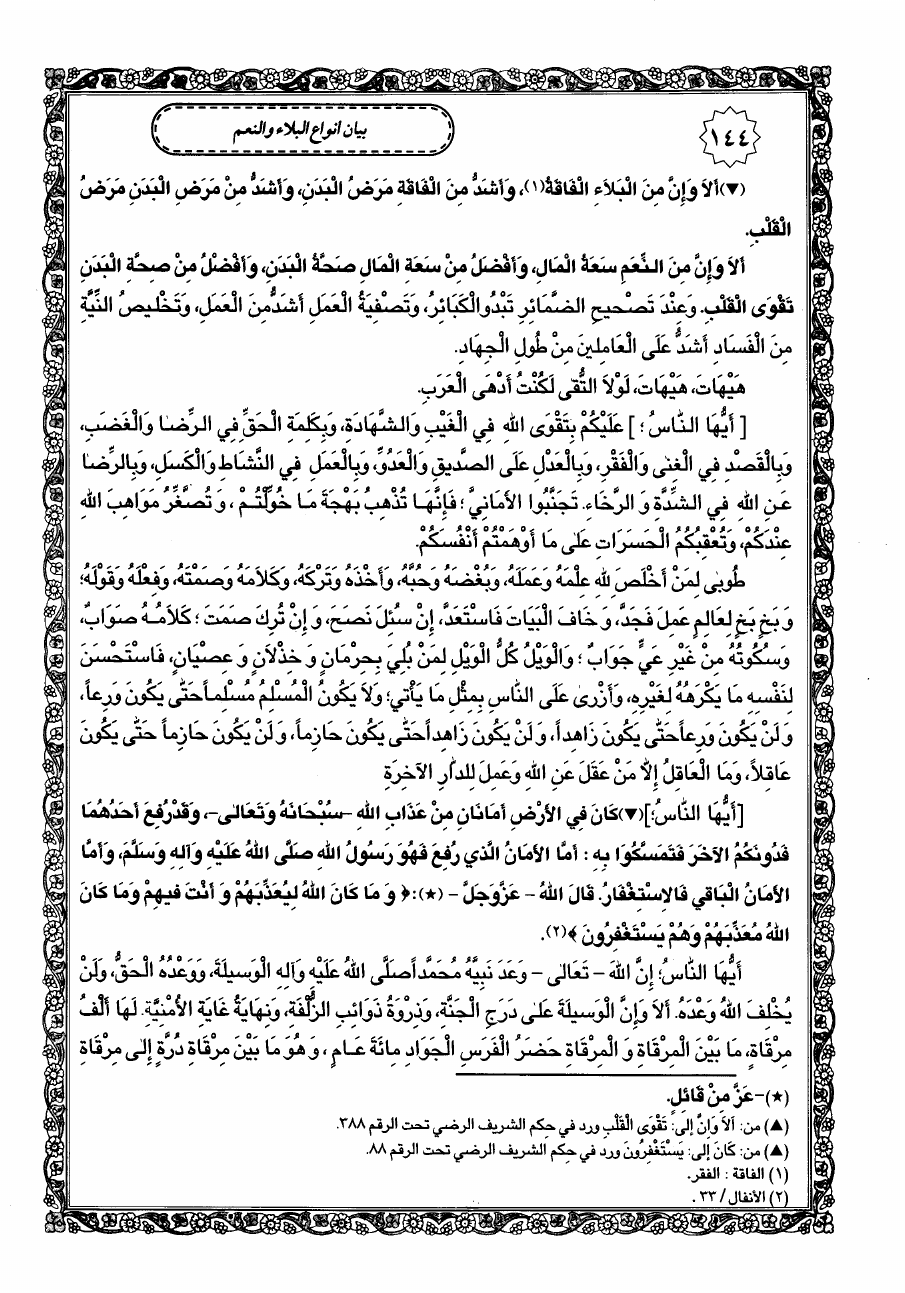 ١٤٤
بيان أنواع البلاء والنعم
(▼) أَلاَ وَإِنَّ مِنَ الْبَلاَءِ الْفَاقَةُ(١)، وَأَشَدُّ مِنَ الْفَاقَةِ مَرَضُ الْبَدَنِ، وَأَشَدُّ مِنْ مَرَضِ الْبَدَنِ مَرَضُ
الْقَلْبِ.
أَلاَ وَإِنَّ مِنَ النِّعَمِ سَعَةُ الْمَالِ، وَأَفْضَلُ مِنْ سَعَةِ الْمَالِ صَحَّةُ الْبَدَنِ، وَأَفْضَلُ مِنْ صِحَّةِ الْبَدَنِ
تَقْوَى الْقَلْبِ. وَعِنْدَ تَصْحيحِ الضَّمَائِرِ تَبْدُو الْكَبَائِرُ، وَتَصْفِيَةُ الْعَمَلِ أَشَدُّ مِنَ الْعَمَلِ، وَتَخْليصُ النِّيَّةِ
مِنَ الْفَسَادِ أَشَدُّ عَلَى الْعَامِلينَ مِنْ طُولِ الْجِهَادِ.
هَيْهَاتَ، هَيْهَاتَ، لَوْلاَ التُّقى لَكُنْتُ أَدْهَى الْعَرَبِ.
[ أَيُّهَا النَّاسُ ؛ ] عَلَيْكُمْ بِتَقْوَى اللهِ فِي الْغَيْبِ وَالشَّهَادَةِ، وَبِكَلِمَةِ الْحَقِّ فِي الرِّضَا وَالْغَضَبِ،
وَبِالْقَصْدِ فِي الْغِنى وَالْفَقْرِ، وَبِالْعَدْلِ عَلَى الصَّديقِ وَالْعَدُوِّ، وَبِالْعَمَلِ فِي النَّشَاطِ وَالْكَسَلِ، وَبِالرِّضَا
عَنِ اللهِ فِي الشِّدَّةِ وَ الرَّخَاءِ. تَجَنَّبُوا الأَمَانِيَّ ؛ فَإِنَّهَا تُذْهِبُ بَهْجَةَ مَا خُوِّلْتُمْ ، وَ تُصَغِّرُ مَوَاهِبَ اللهِ
عِنْدَكُمْ، وَتُعْقِبُكُمُ الْحَسَرَاتِ عَلى مَا أَوْهَمْتُمْ أَنْفُسَكُمْ.
طُوبى لِمَنْ أَخْلَصَ لِلّهِ عِلْمَهُ وَعَمَلَهُ، وَبُغْضَهُ وَحُبَّهُ، وَأَخْذَهُ وَتَرْكَهُ، وَكَلاَمَهُ وَصَمْتَهُ، وَفِعْلَهُ وَقَوْلَهُ؛
وَ بَخٍ بَخٍ لِعَالِمٍ عَمِلَ فَجَدَّ، وَ خَافَ الْبَيَاتَ فَاسْتَعَدَّ، إِنْ سُئِلَ نَصَحَ، وَ إِنْ تُرِكَ صَمَتَ ؛ كَلاَمُهُ صَوَابٌ،
وَسُكُوتُهُ مِنْ غَيْرِ عِيٍّ جَوَابٌ ؛ وَالْوَيْلُ كُلُّ الْوَيْلِ لِمَنْ بُلِيَ بِحِرْمَانٍ وَ خِذْلاَنٍ وَ عِصْيَانٍ، فَاسْتَحْسَنَ
لِنَفْسِهِ مَا يَكْرَهُهُ لِغَيْرِهِ، وَأَزْرى عَلَى النَّاسِ بِمِثْلِ مَا يَأْتي؛ وَلاَ يَكُونُ الْمُسْلِمُ مُسْلِماً حَتّى يَكُونَ وَرِعاً،
وَ لَنْ يَكُونَ وَرِعاً حَتّى يَكُونَ زَاهِداً، وَ لَنْ يَكُونَ زَاهِداً حَتّى يَكُونَ حَازِماً، وَ لَنْ يَكُونَ حَازِماً حَتّى يَكُونَ
عَاقِلاً، وَمَا الْعَاقِلُ إِلاَّ مَنْ عَقَلَ عَنِ اللهِ وَعَمِلَ لِلدَّارِ الآخِرَةِ
[أَيُّهَا النَّاسُ؛](▼) كَانَ فِي الأَرْضِ أَمَانَانِ مِنْ عَذَابِ اللهِ -سُبْحَانَهُ وَتَعَالى-، وَقَدْ رُفِعَ أَحَدُهُمَا
فَدُونَكُمُ الآخَرَ فَتَمَسَّكُوا بِهِ : أَمَّا الأَمَانُ الَّذي رُفِعَ فَهُوَ رَسُولُ اللهِ صَلَّى اللهُ عَلَيْهِ وَآلِهِ وَسَلَّمَ، وَأَمَّا
الأَمَانُ الْبَاقي فَالاِسْتِغْفَارُ. قَالَ اللهُ - عَزَّ وَجَلَّ - (★):﴿ وَ مَا كَانَ اللهُ لِيُعَذِّبَهُمْ وَ أَنْتَ فيهِمْ وَمَا كَانَ
اللهُ مُعَذِّبَهُمْ وَهُمْ يَسْتَغْفِرُونَ ﴾(٢).
أَيُّهَا النَّاسُ؛ إِنَّ اللهَ - تَعَالى - وَعَدَ نَبِيَّهُ مُحَمَّداً صَلَّى اللهُ عَلَيْهِ وَآلِهِ الْوَسيلَةَ، وَوَعْدُهُ الْحَقُّ، وَلَنْ
يُخْلِفَ اللهُ وَعْدَهُ. أَلاَ وَإِنَّ الْوَسيلَةَ عَلى دَرَجِ الْجَنَّةِ، وَذِرْوَةُ ذَوَائِبِ الزُّلْفَةِ، وَنِهَايَةُ غَايَةِ الأُمْنِيَّةِ. لَهَا أَلْفُ
مِرْقَاةٍ، مَا بَيْنَ الْمِرْقَاةِ وَ الْمِرْقَاةِ حَضَرُ الْفَرَسِ الْجَوَادِ مِائَةَ عَامٍ ، وَ هُوَ مَا بَيْنَ مِرْقَاةِ دُرَّةٍ إِلى مِرْقَاةِ
(★)-عَزَّ مِنْ قَائِلٍ.
(▲) من: أَلاَ وَإِنَّ إلى: تَقْوَى الْقَلْبِ ورد في حكم الشريف الرضي تحت الرقم ٣٨٨.
(▲) من: كَانَ إلى: يَسْتَغْفِرُونَ ورد في حكم الشريف الرضي تحت الرقم ٨٨.
(١) الفاقة : الفقر.
(٢) الأنفال / ٣٣ .